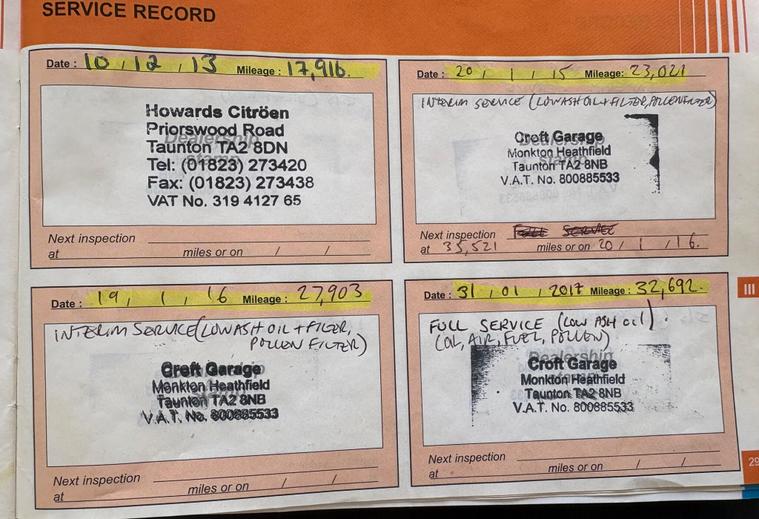 SERVICE RECORD
Date : 10 / 12 / 13 Mileage : 17,916.
Howards Citröen
Priorswood Road
Taunton TA2 8DN
Tel: (01823) 273420
Fax: (01823) 273438
VAT No. 319 4127 65
Next inspection
at miles or on / /
Date : 20 / 1 / 15 Mileage: 23,021
INTERIM SERVICE (LOW ASH OIL + FILTER, POLLEN FILTER)
Croft Garage
Monkton Heathfield
Taunton TA2 8NB
V.A.T. No. 800885533
Next inspection FULL SERVICE
at 35,521 miles or on 20 / 1 / 16.
Date : 19 / 1 / 16 Mileage : 27,903
INTERIM SERVICE (LOW ASH OIL + FILTER,
POLLEN FILTER)
Croft Garage
Monkton Heathfield
Taunton TA2 8NB
V.A.T. No. 800885533
Next inspection
at miles or on / /
Date : 31 / 01 / 2017 Mileage : 32,692.
FULL SERVICE (LOW ASH OIL).
(OIL, AIR, FUEL, POLLEN)
Dealership
Croft Garage
Monkton Heathfield
Taunton TA2 8NB
V.A.T. No. 800885533
Next inspection
at miles or on / /
III
29